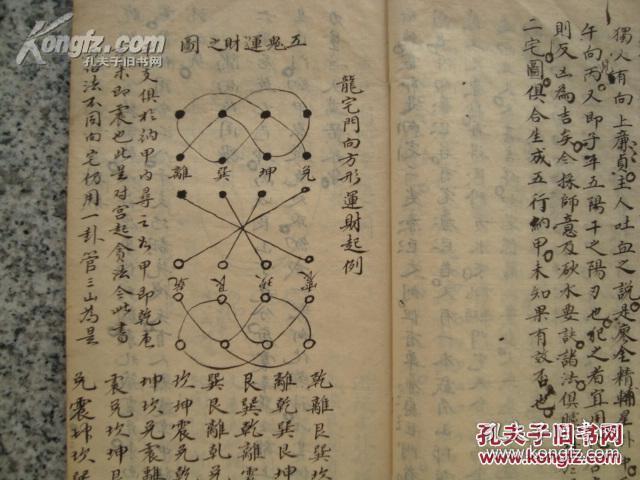 獨火有向上廉貞主人吐血之說是廖金精輔星
午向丙又即子午五陽干之陽刃也犯之者宜用
則反凶為吉矣今採師意及砂水要訣諸法俱
二宅圖俱合生成五行納甲未知果有效否也
龍宅門向方形運財起例
五鬼運財之圖
兌 坤 巽 離
震 坎 艮 乾
支俱於納甲內尋之如甲即乾
未即震也此是对宫起貪法今此書
法不同向宅仍用一卦管三山為是
乾離艮巽坎
離乾巽艮坤
艮巽乾離震
巽艮離乾兌
坎坤震兌乾
坤坎兌震離
震兌坎坤艮
兌震坤坎
孔夫子旧书网
kongfz.com
孔夫子旧书网
www.kongfz.com